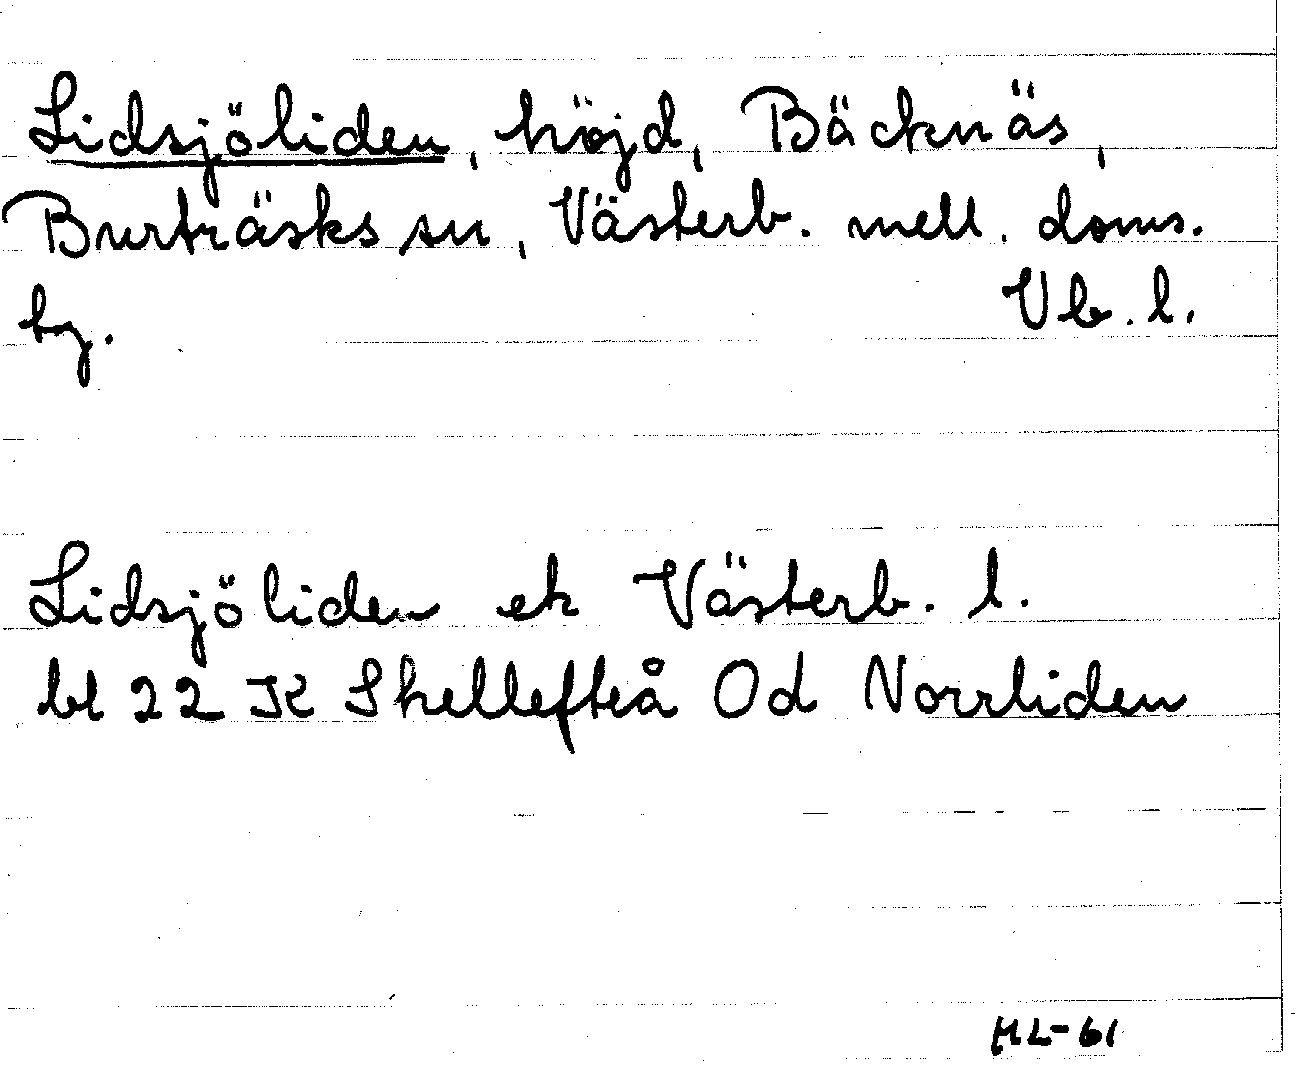 Lidsjöliden, höjd, Bäcknäs,
Burträsks sn, Västerb. mell. doms.
by. Vb. l.
Lidsjöliden ek Västerb. l.
bl 22 K Skellefteå Od Norrliden
HL-61